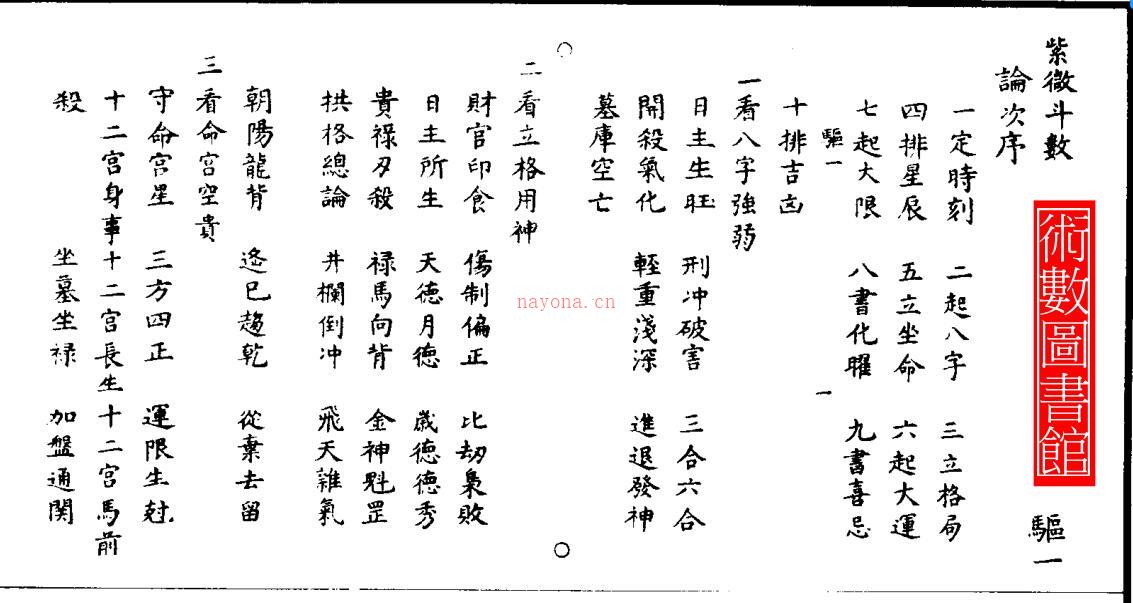 紫微斗數 驅一
術數圖書館
論次序
一定時刻 二起八字 三立格局
四排星辰 五立坐命 六起大運
七起大限 八書化曜 九書喜忌
驅一 一
十排吉凶
一看八字強弱
日主生旺 刑冲破害 三合六合
開殺氣化 輕重淺深 進退發神
墓庫空亡
二看立格用神
財官印食 傷制偏正 比劫梟敗
日主所生 天德月德 歲德德秀
貴祿刃殺 禄馬向背 金神魁罡
拱格總論 井欄倒冲 飛天雜氣
朝陽龍背 遙巳趨乾 從棄去留
三看命宮空貴
守命宮星 三方四正 運限生尅
十二宮身事 十二宮長生 十二宮馬前
殺 坐墓坐禄 加盤通関
nayona.cn